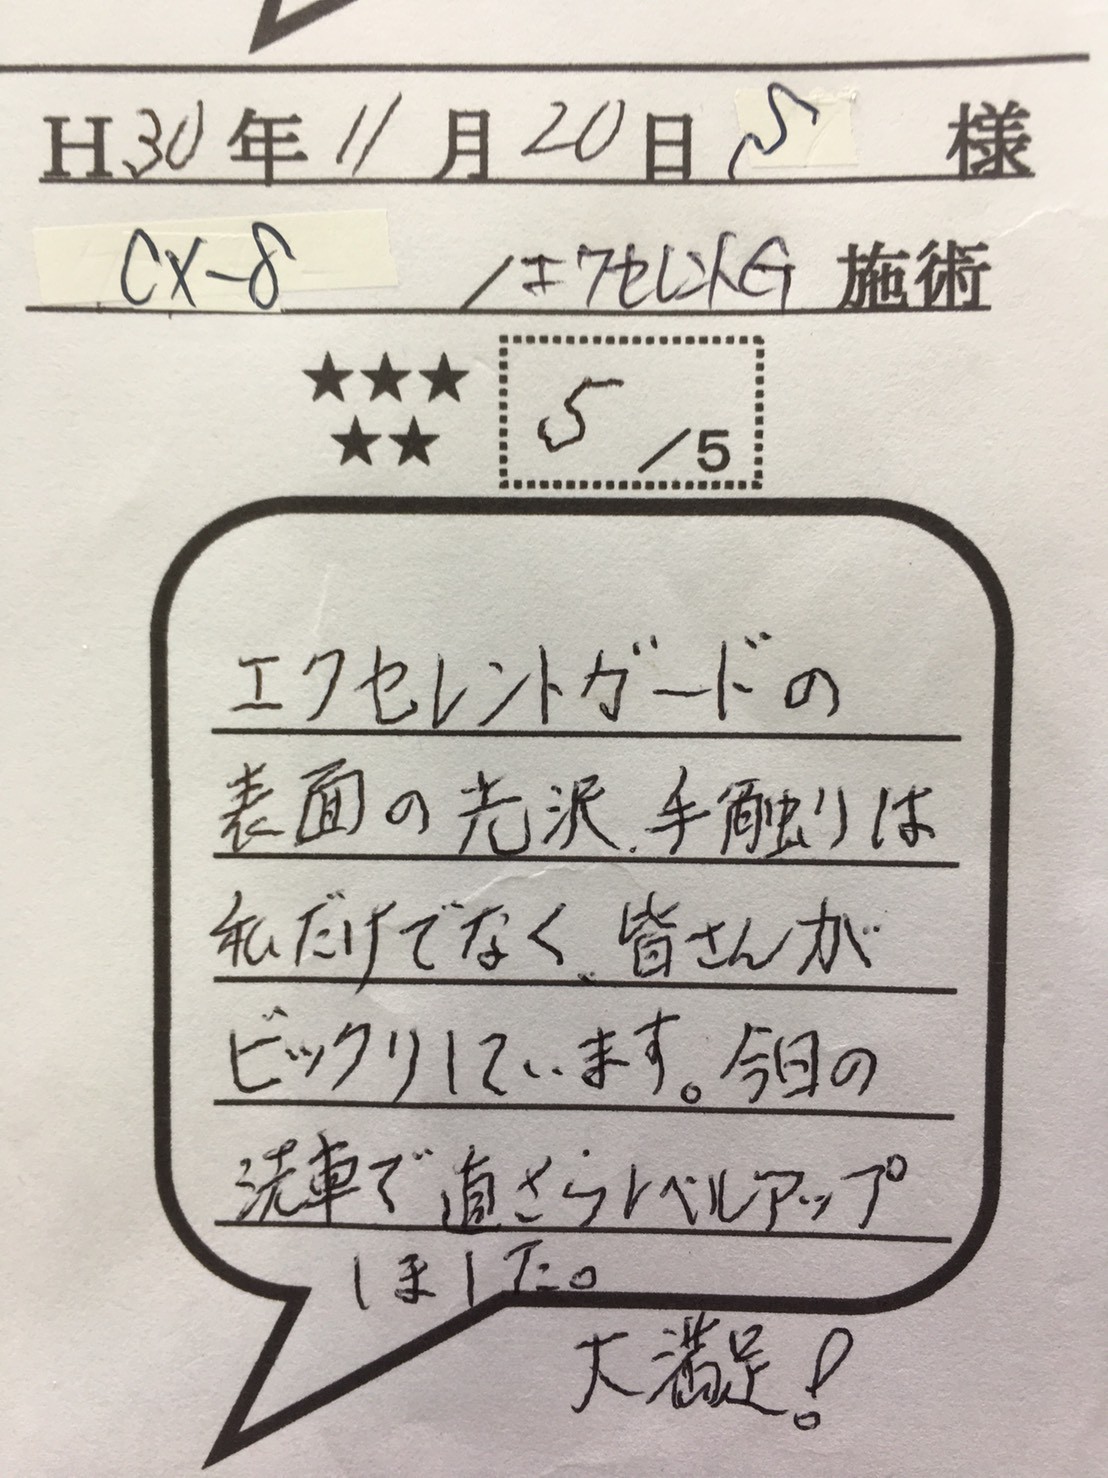 H30年11月20日 S 様
CX-8 /エクセレントG 施術
★★★
★★
5/5
エクセレントガードの
表面の光沢、手触りは
私だけでなく、皆さんが
ビックリしています。今日の
洗車で直さらレベルアップ
しました。
大満足!